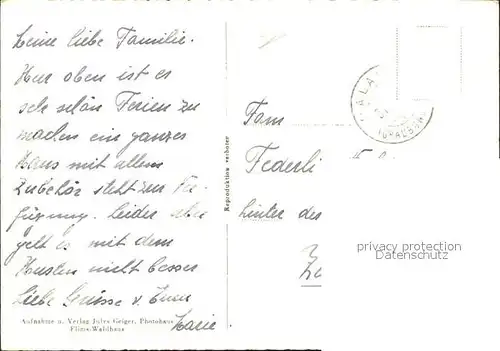 Meine liebe Familie.
Hier oben ist es
sehr schön Ferien zu
machen ein ganzes
Haus mit allem
Zubehör steht zur Ver-
fügung. leider aber
geht es mit dem
Husten nicht besser
Liebe Grüsse v. Euer
Marie
Aufnahme u. Verlag Jules Geiger, Photohaus
Flims-Waldhaus
Reproduktion verboten
Fam
Federli
hinter des
privacy protection
Datenschutz